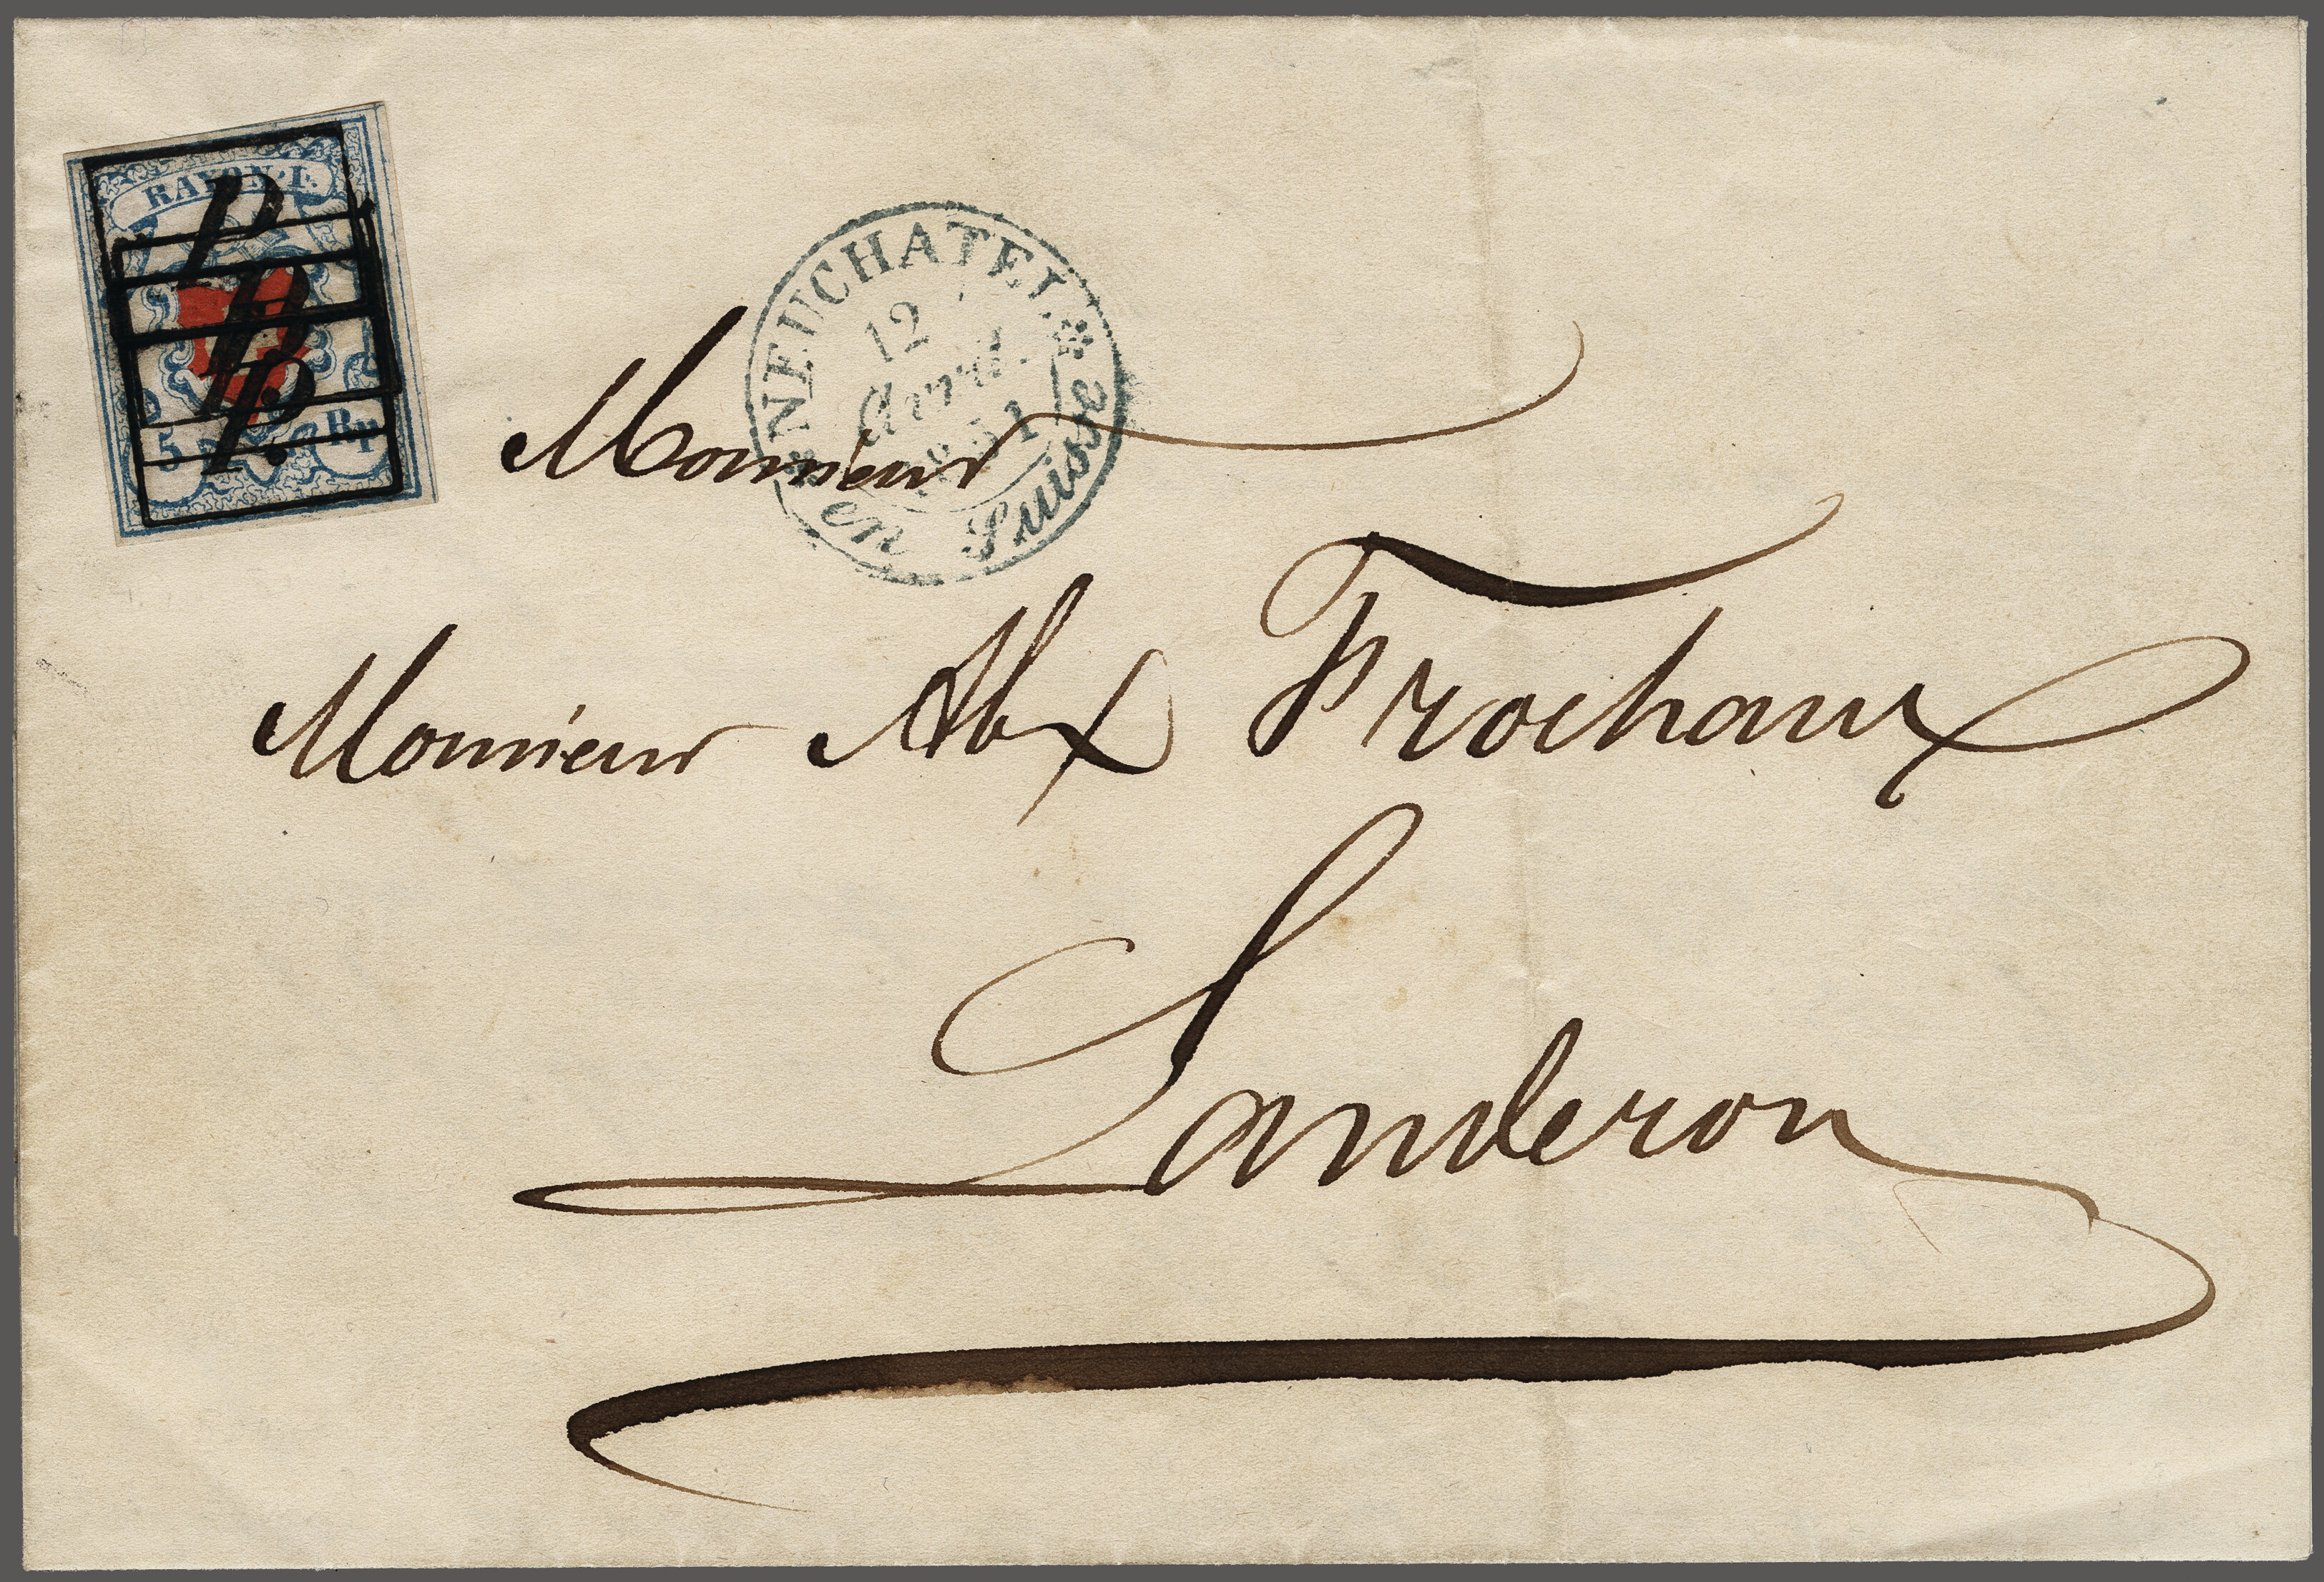 RAYON. I.
P.P.
P.P.
5 Rp
NEUCHATEL
12
Avril
1851
en Suisse
Monsieur
Monsieur Alx Frochaux
Landeron